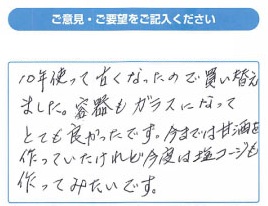 ご意見・ご要望をご記入ください
10年使って古くなったので買い替え
ました。容器もガラスになって
とても良かったです。今までは甘酒を
作っていたけれど今度は塩コージも
作ってみたいです。